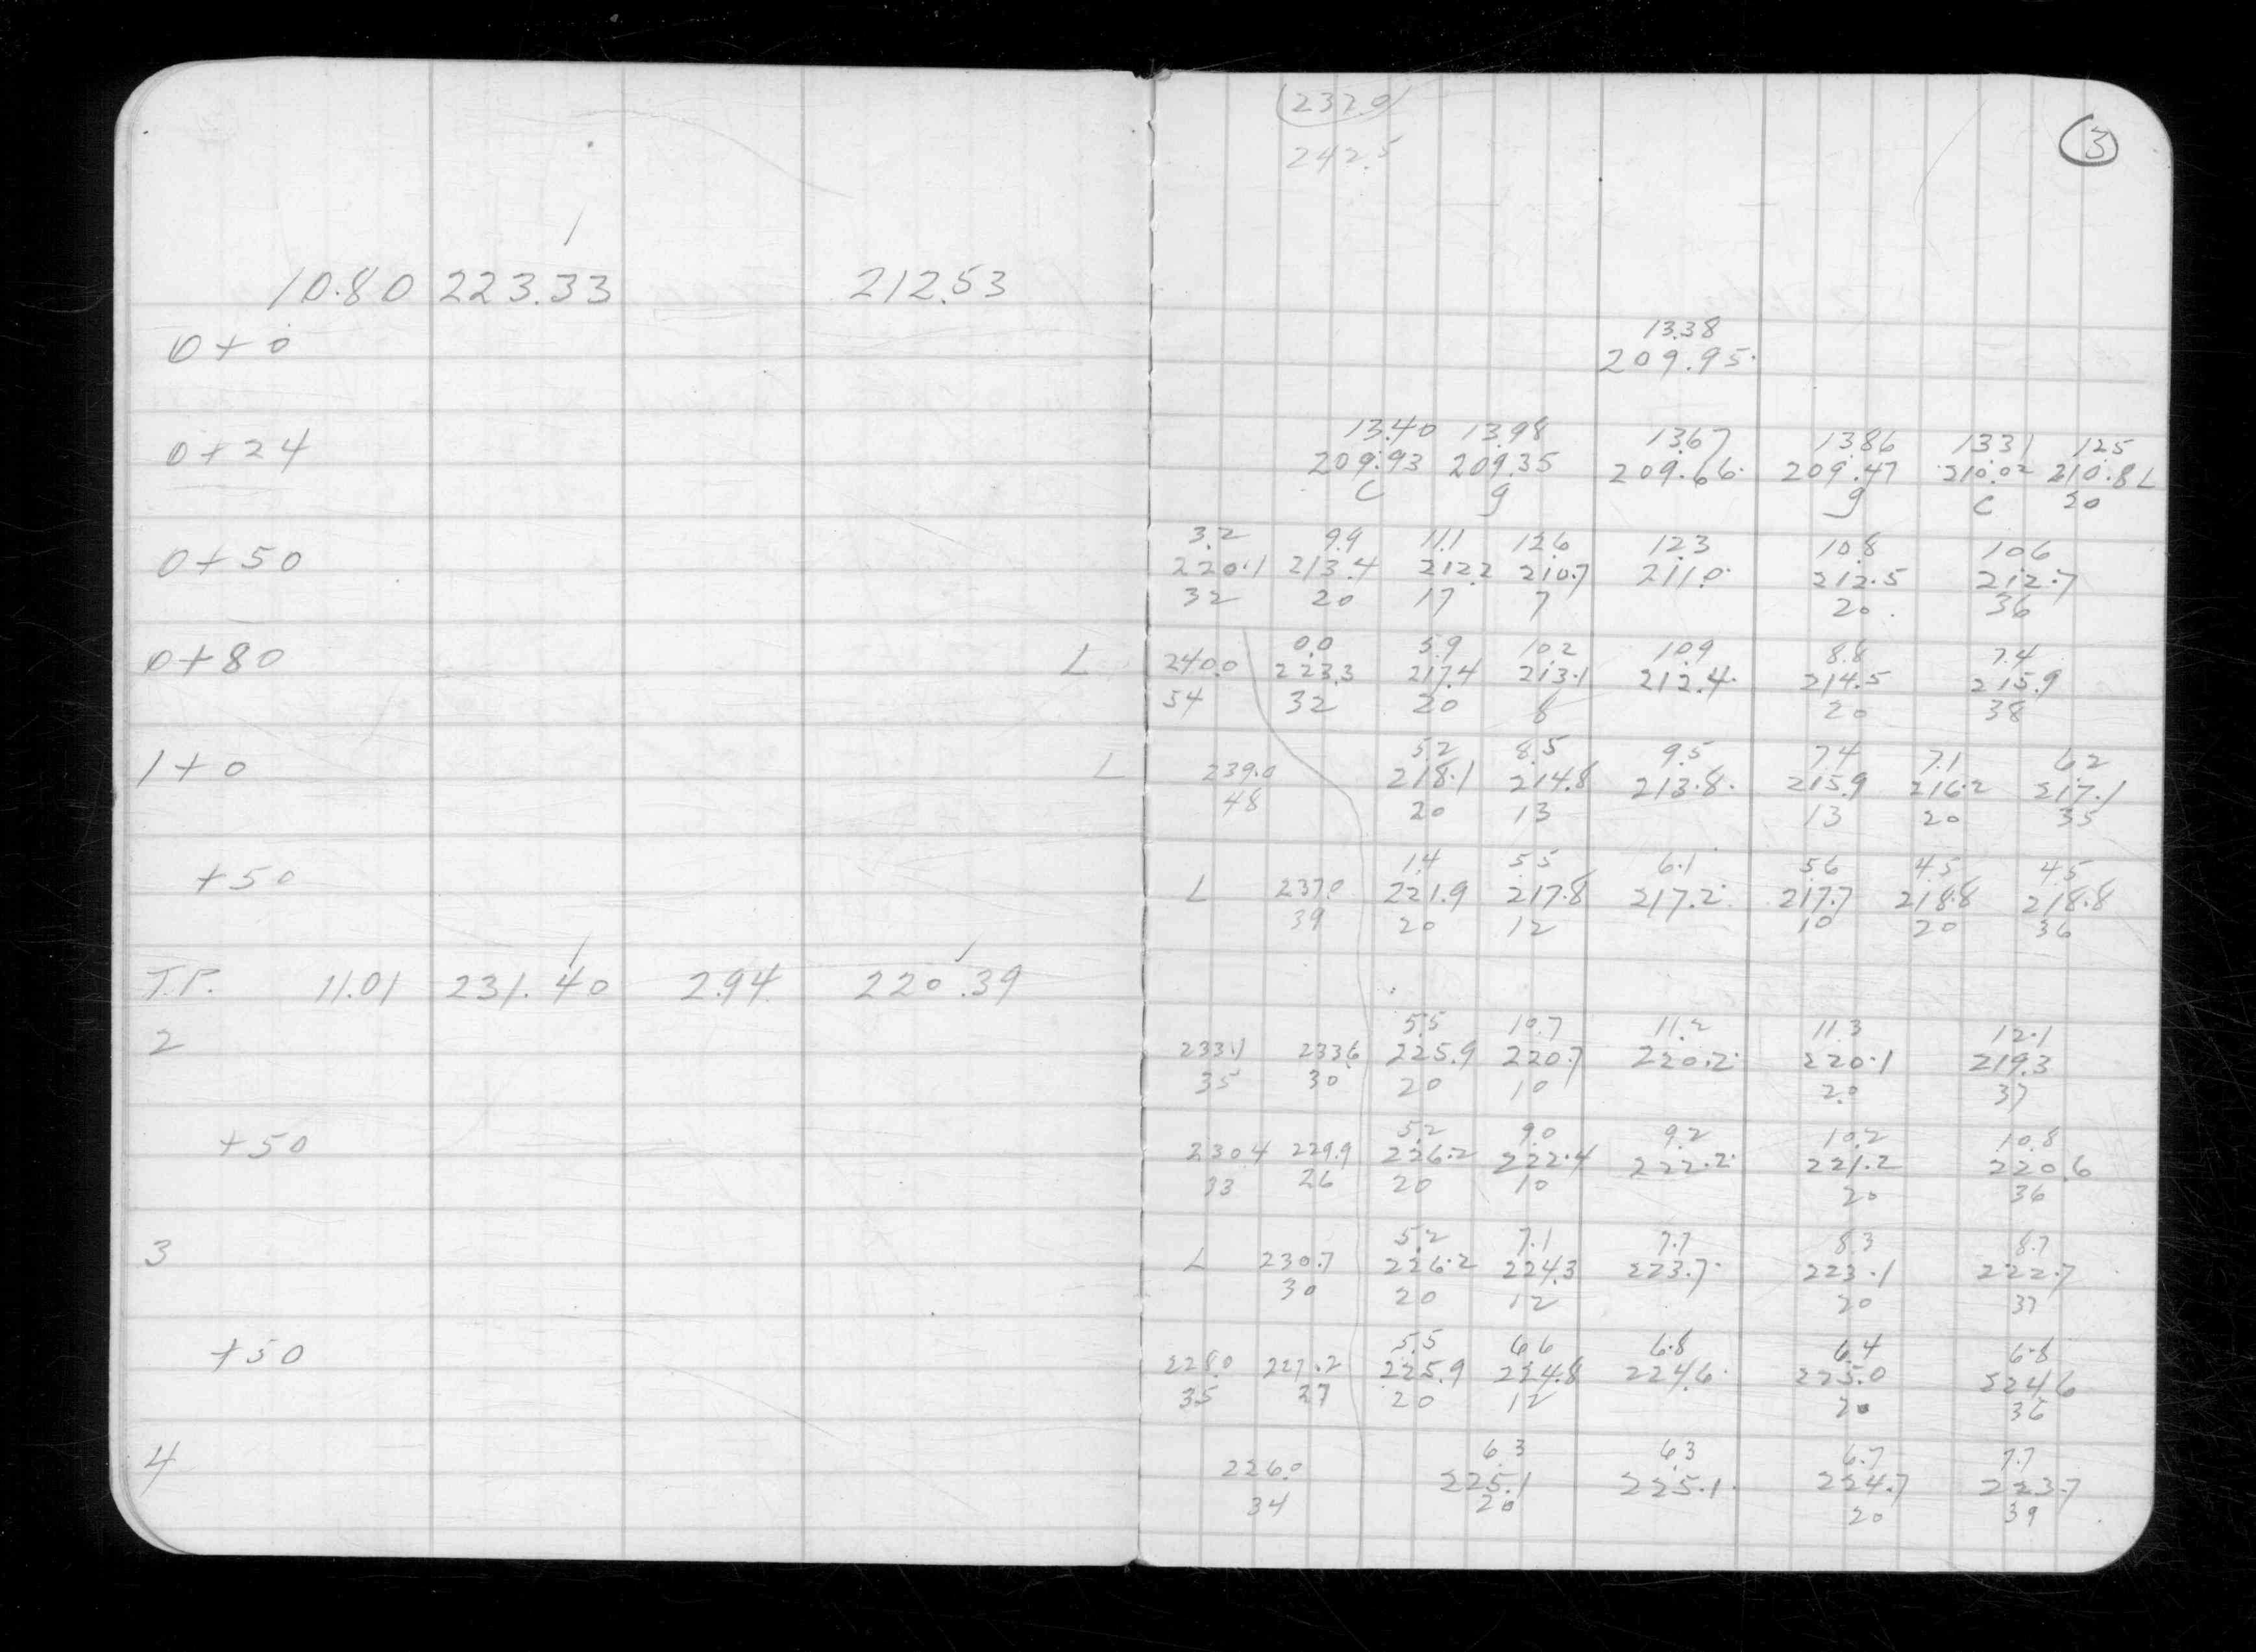 232.0
3
242.5
10.80 223.33 212.53
0+0 13.38
209.95
13.40 13.98 13.67 13.86 13.31 12.5
0+24 209.93 209.35 209.66 209.47 210.02 210.8 L
C g g C 30
3.2 9.9 11.1 12.6 12.3 10.8 10.6
0+50 220.1 213.4 212.2 210.7 211.0 212.5 212.7
32 20 17 7 20 36
0.0 5.9 10.2 10.9 8.8 7.4
0+80 L 240.0 223.3 217.4 213.1 212.4 214.5 215.9
54 32 20 8 20 38
5.2 8.5 9.5 7.4 7.1 6.2
1+0 L 239.0 218.1 214.8 213.8 215.9 216.2 217.1
48 20 13 13 20 35
1.4 5.5 6.1 5.6 4.5 4.5
+50 L 237.0 221.9 217.8 217.2 217.7 218.8 218.8
39 20 12 10 20 36
T.P. 11.01 231.40 2.94 220.39
5.5 10.7 11.2 11.3 12.1
2 233.1 233.6 225.9 220.7 220.2 220.1 219.3
35 30 20 10 20 37
5.2 9.0 9.2 10.2 10.8
+50 230.4 229.9 226.2 222.4 222.2 221.2 220.6
33 26 20 10 20 36
5.2 7.1 7.7 8.3 8.7
3 L 230.7 226.2 224.3 223.7 223.1 222.7
30 20 12 20 37
5.5 6.6 6.8 6.4 6.8
+50 228.0 227.2 225.9 224.8 224.6 225.0 224.6
35 27 20 12 20 36
6.3 6.3 6.7 7.7
4 226.0 225.1 225.1 224.7 223.7
34 20 20 39